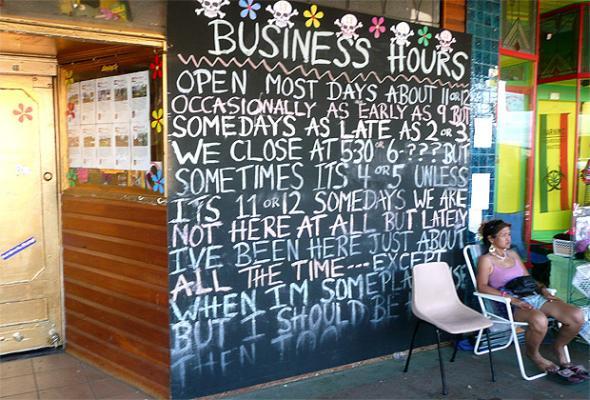 BUSINESS HOURS
OPEN MOST DAYS ABOUT 11 OR 12
OCCASIONALLY AS EARLY AS 9 BUT
SOMEDAYS AS LATE AS 2 OR 3.
WE CLOSE AT 530 OR 6-??? BUT
SOMETIMES ITS 4 OR 5 UNLESS
ITS 11 OR 12 SOMEDAYS WE ARE
NOT HERE AT ALL BUT LATELY
I'VE BEEN HERE JUST ABOUT
ALL THE TIME---EXCEPT
WHEN IM SOMEPLACE
BUT I SHOULD BE
THEN TOO